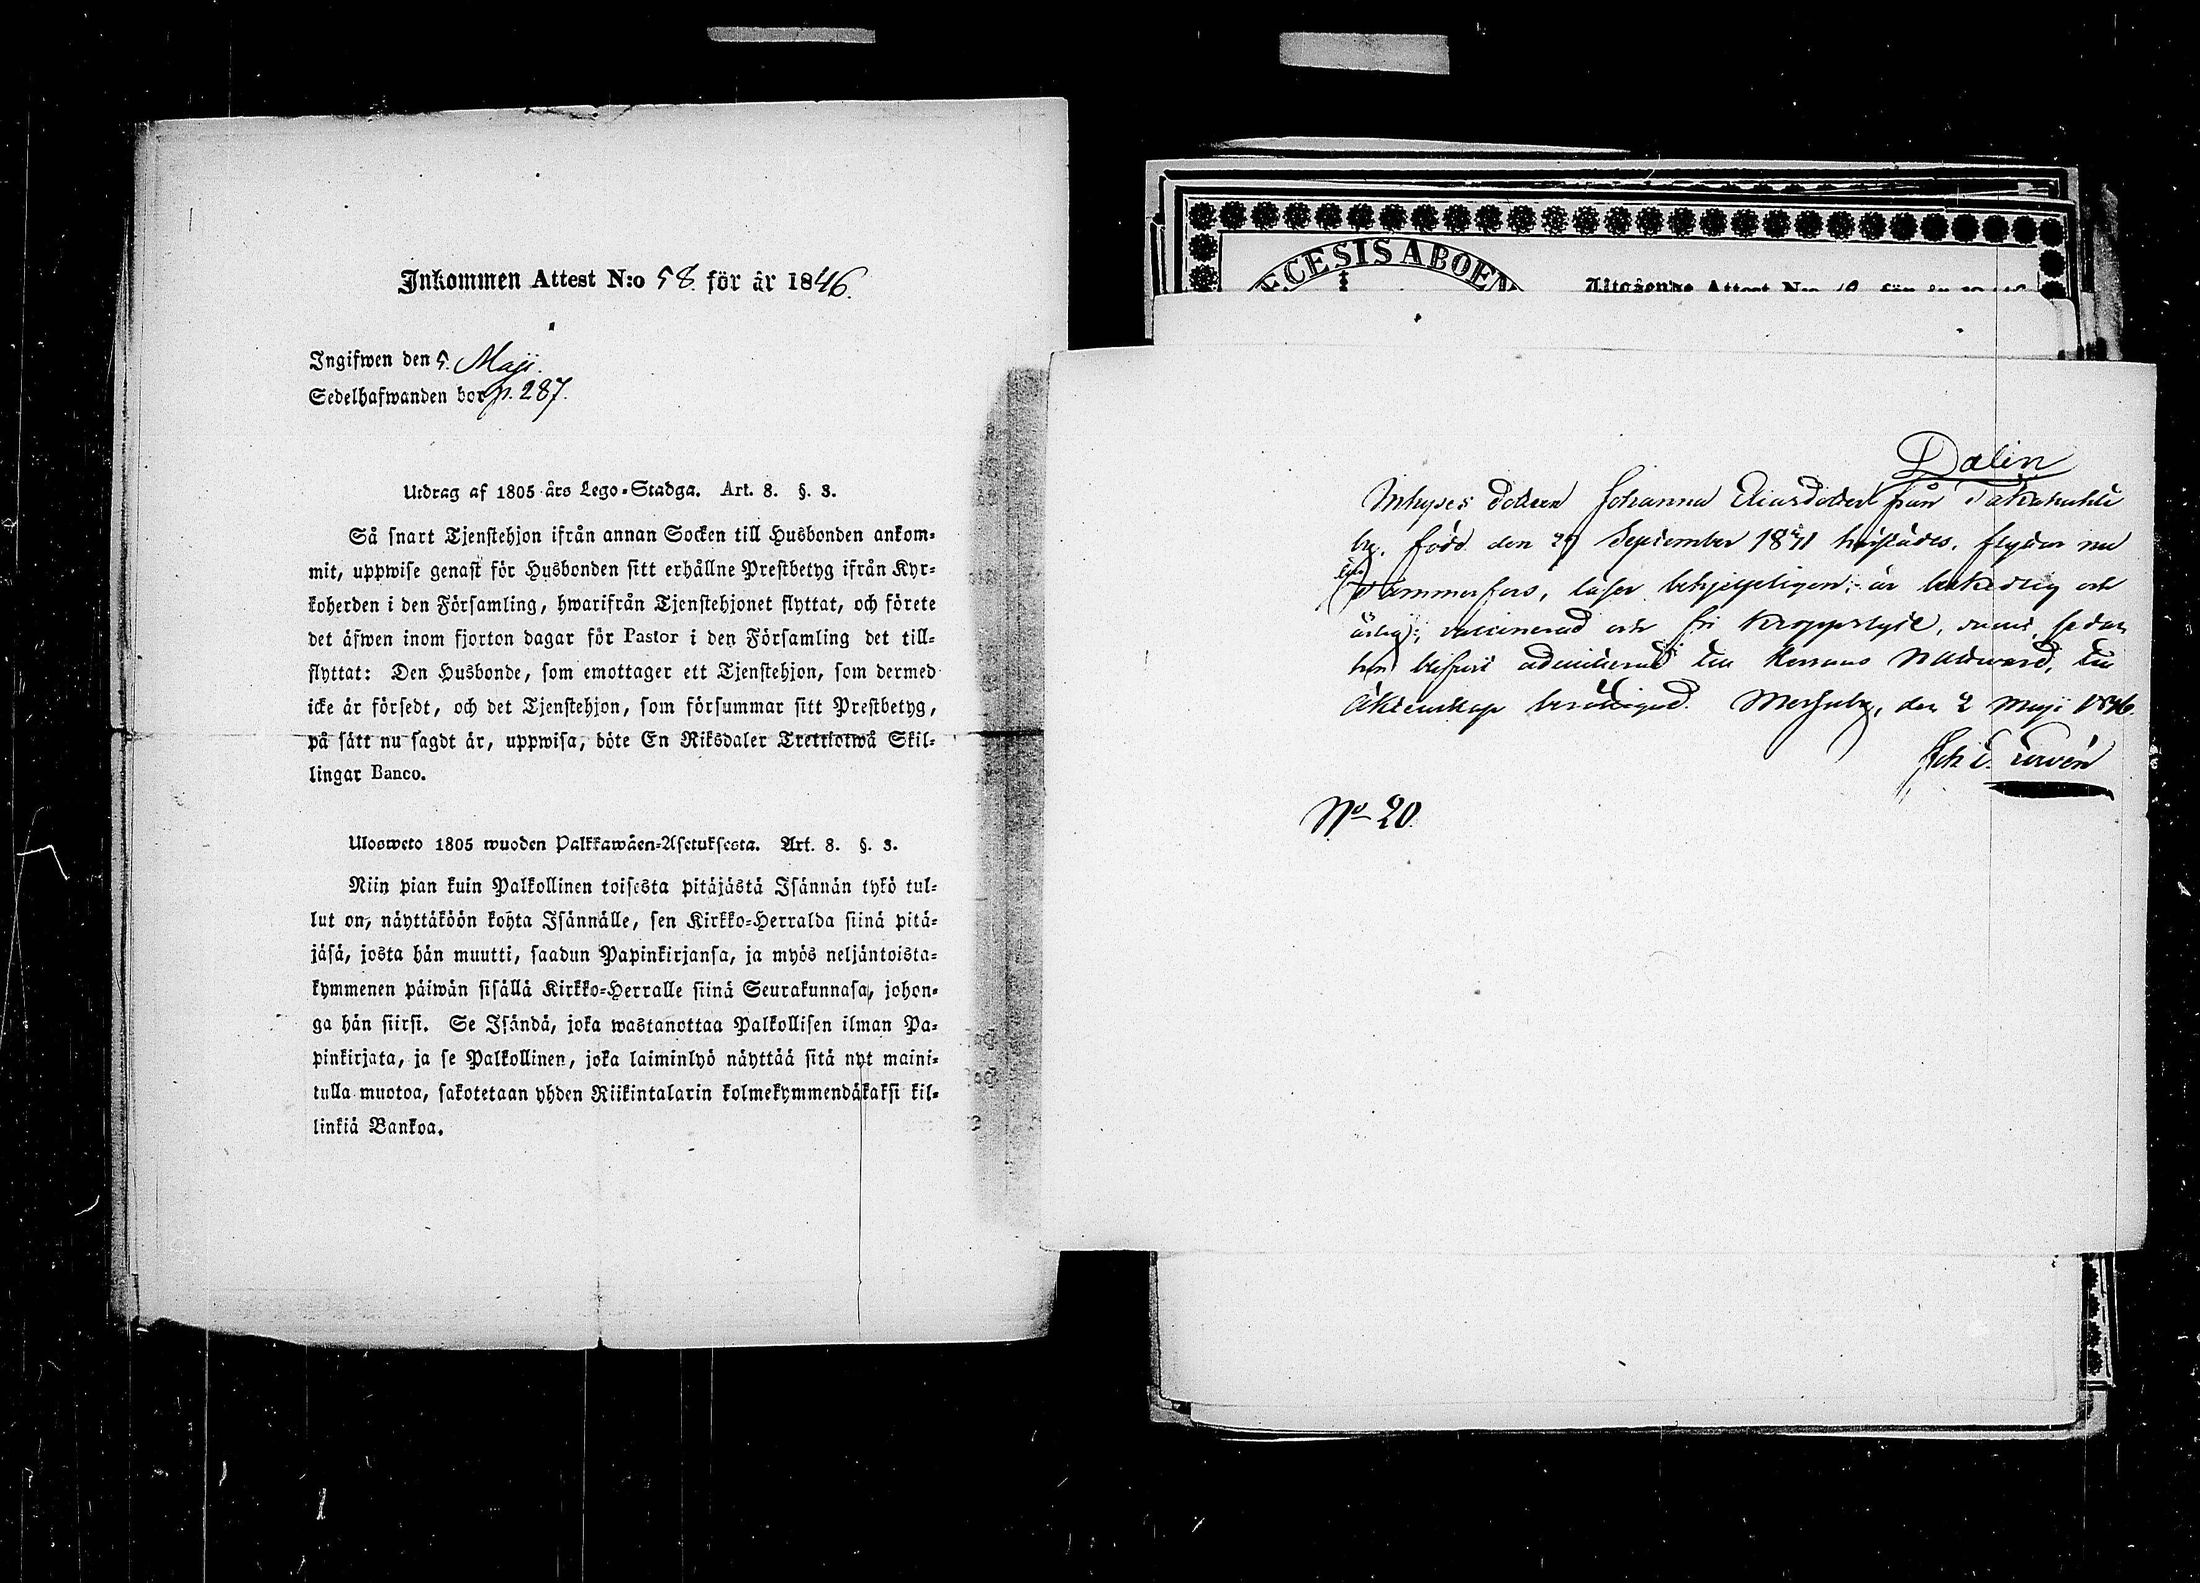 Inkommen Attest N:o 58. för år 1846.
Ingifwen den 5. Maji.
Sedelhafwanden bor p. 287.
Utdrag af 1805 års Lego-Stadga. Art. 8. §. 3.
Så snart Tjenstehjon ifrån annan Socken till Husbonden ankom-
mit, uppwise genast för Husbonden sitt erhållne Prestbetyg ifrån Kyr-
koherden i den Församling, hwarifrån Tjenstehjonet flyttat, och förete
det äfwen inom fjorton dagar för Pastor i den Församling det till-
flyttat: Den Husbonde, som emottager ett Tjenstehjon, som dermed
icke är försedt, och det Tjenstehjon, som försummar sitt Prestbetyg,
på sätt nu sagdt är, uppwisa, böte En Riksdaler Trettiotwå Skil-
lingar Banco.
Ulosweto 1805 wuoden Palkkawäen-Asetuksesta. Art. 8. §. 3.
Niin pian kuin Palkollinen toisesta pitäjästä Isännän tykö tul-
lut on, näyttäköön kohta Isännälle, sen Kirkko-Herralda siinä pitä-
jäsä, josta hän muutti, saadun Papinkirjansa, ja myös neljäntoista-
kymmenen päiwän sisällä Kirkko-Herralle siinä Seurakunnasa, johon-
ga hän siirsi. Se Isändä, joka wastanottaa Palkollisen ilman Pa-
pinkirjata, ja se Palkollinen, joka laiminlyö näyttää sitä nyt maini-
tulla muotoa, sakotetaan yhden Riikintalarin kolmekymmendäkaksi kil-
linkiä Bankoa.
ECESIS ABOEN
Utgående Attest N:o för år
Dalin
Inhyses dottren Johanna Eliasdotter från
by. född den September härstädes, flyttar nu
till Tammerfors, läser behjelpeligen, är beskedlig och
ärlig, vaccinerad och fri kroppslyte, sedan
hon blifwit admitterad till Herrans Nattward, till
Äktenskap berättigad. den 2 Maji 1846.
No 20.